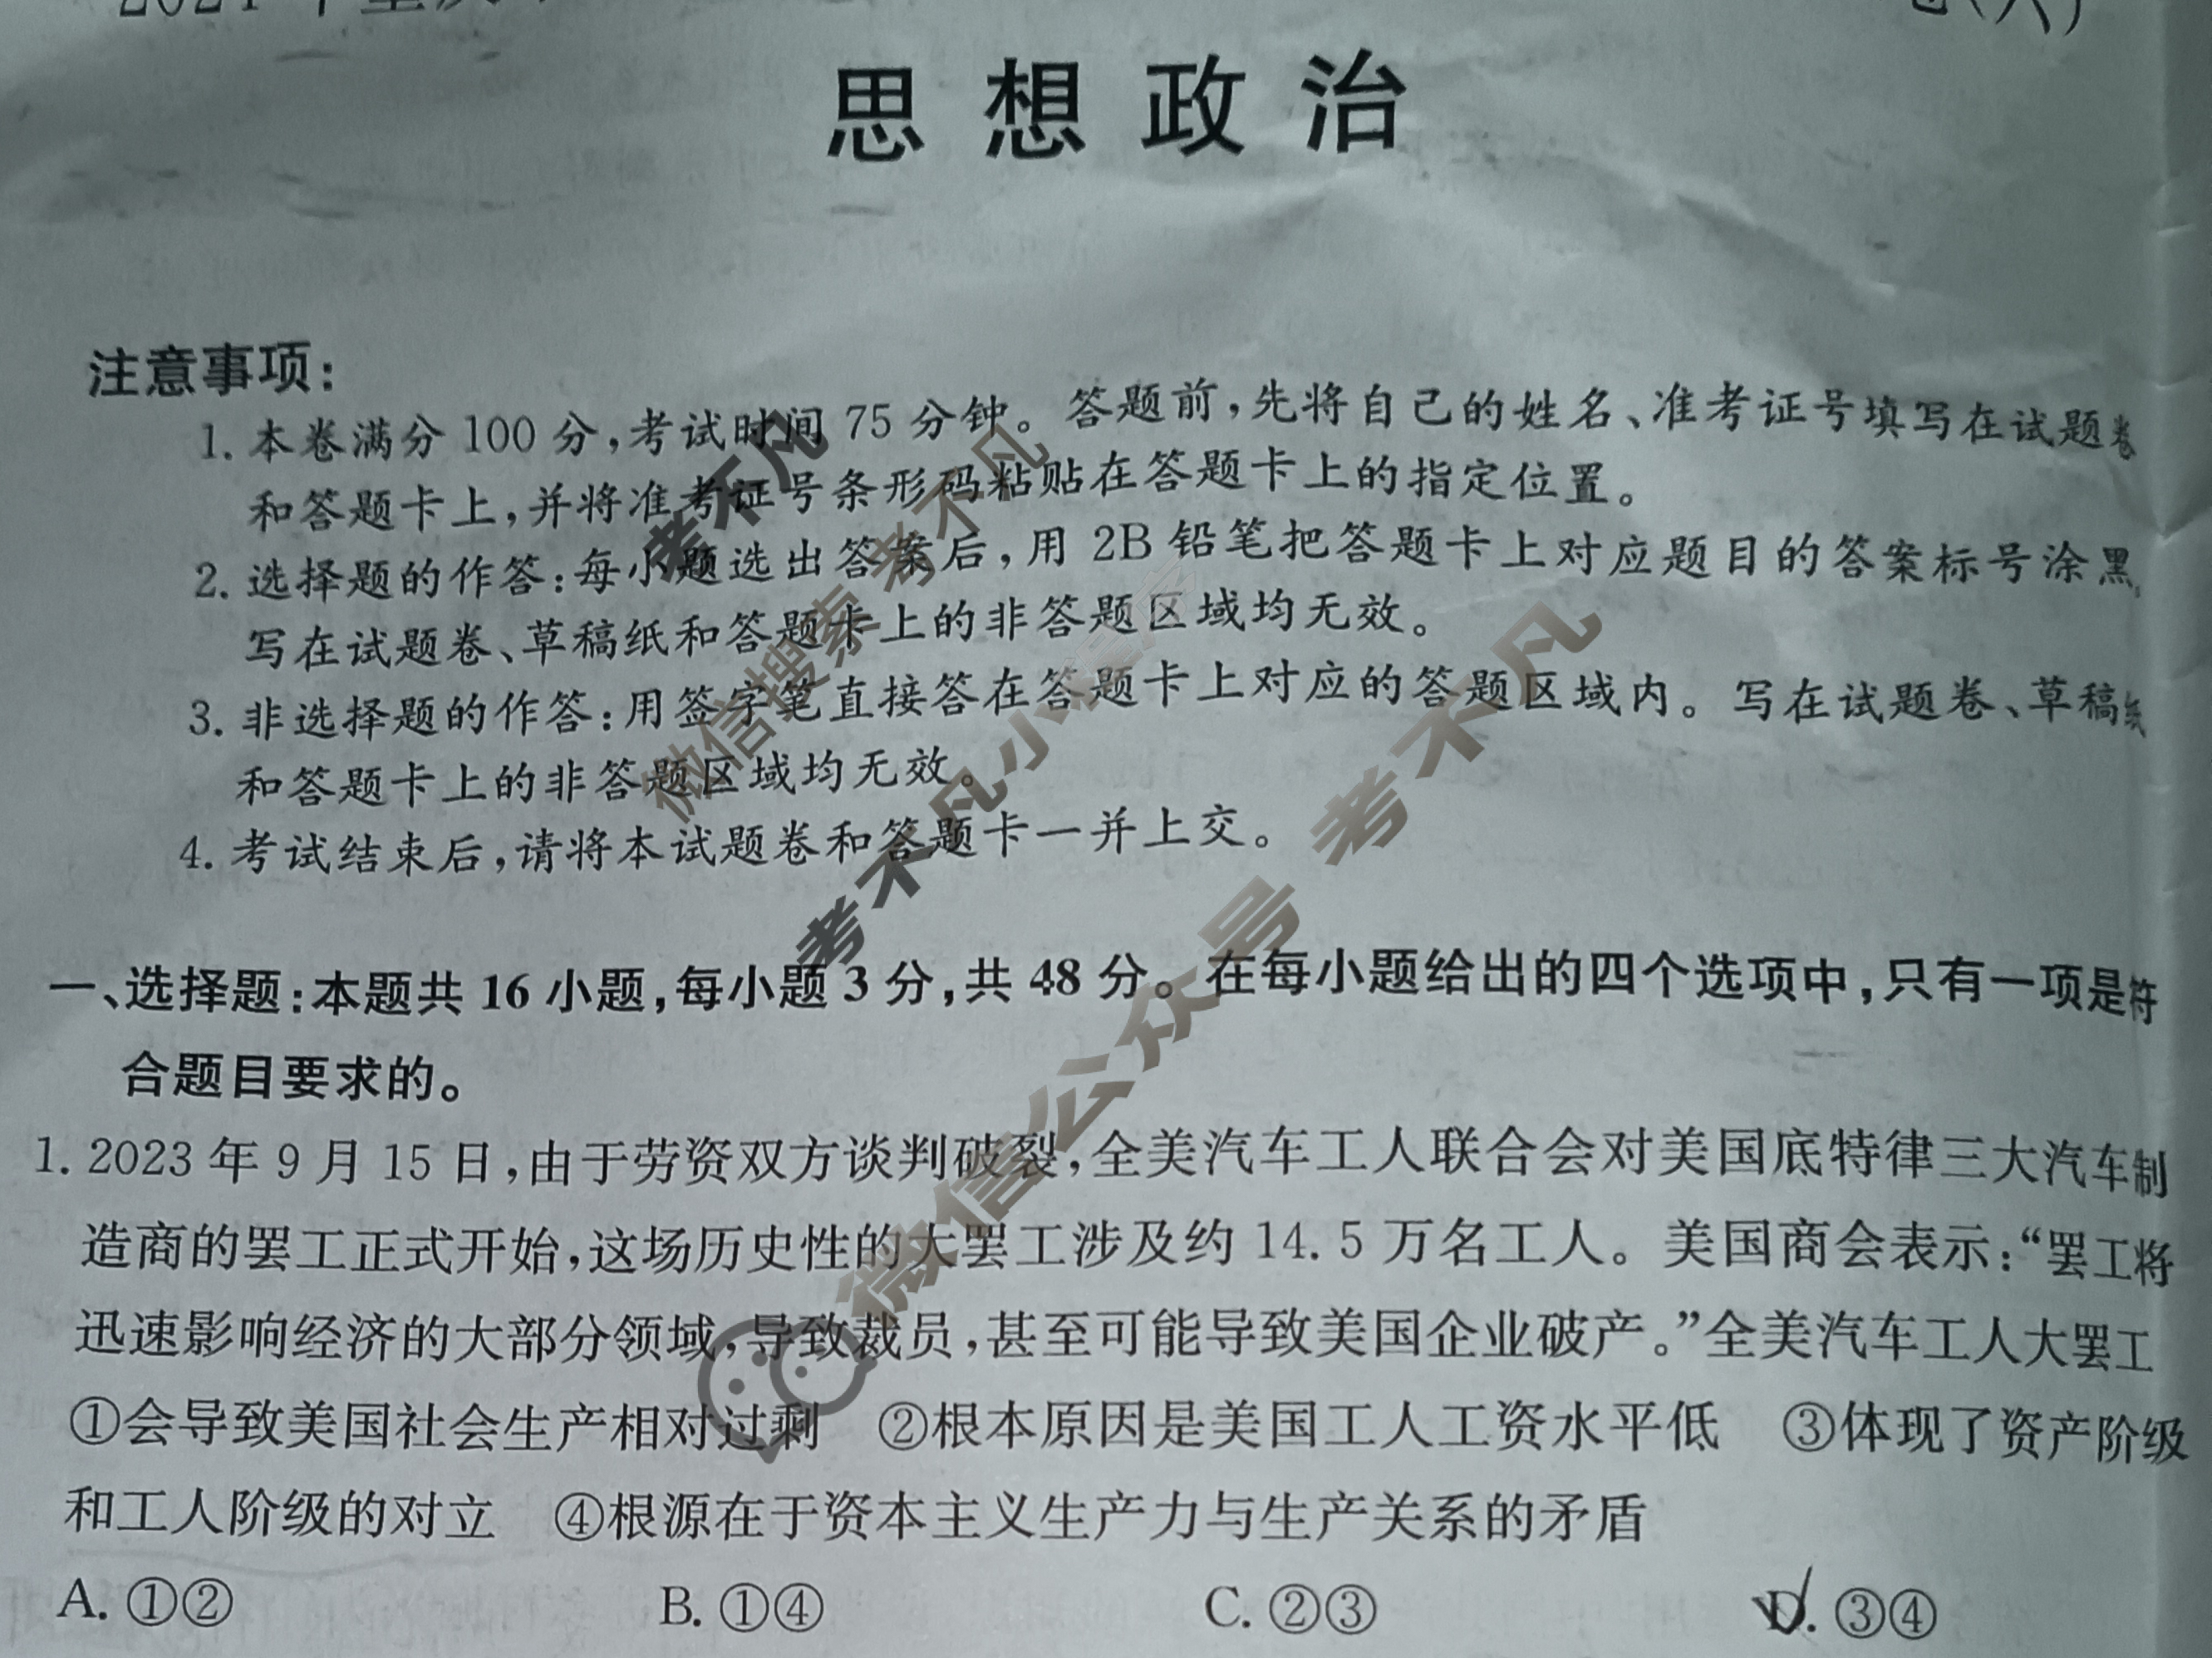 思想政治
注意事项：
1. 本卷满分 100 分，考试时间 75 分钟。答题前，先将自己的姓名、准考证号填写在试题卷
和答题卡上，并将准考证号条形码粘贴在答题卡上的指定位置。
2. 选择题的作答：每小题选出答案后，用 2B 铅笔把答题卡上对应题目的答案标号涂黑。
写在试题卷、草稿纸和答题卡上的非答题区域均无效。
3. 非选择题的作答：用签字笔直接答在答题卡上对应的答题区域内。写在试题卷、草稿纸
和答题卡上的非答题区域均无效。
4. 考试结束后，请将本试题卷和答题卡一并上交。
一、选择题：本题共 16 小题，每小题 3 分，共 48 分。在每小题给出的四个选项中，只有一项是符
合题目要求的。
1. 2023 年 9 月 15 日，由于劳资双方谈判破裂，全美汽车工人联合会对美国底特律三大汽车制
造商的罢工正式开始，这场历史性的大罢工涉及约 14.5 万名工人。美国商会表示：“罢工将
迅速影响经济的大部分领域，导致裁员，甚至可能导致美国企业破产。”全美汽车工人大罢工
①会导致美国社会生产相对过剩 ②根本原因是美国工人工资水平低 ③体现了资产阶级
和工人阶级的对立 ④根源在于资本主义生产力与生产关系的矛盾
A. ①② B. ①④ C. ②③ D. ③④
考不凡
微信搜索 考不凡
考不凡小程序
微信公众号 考不凡